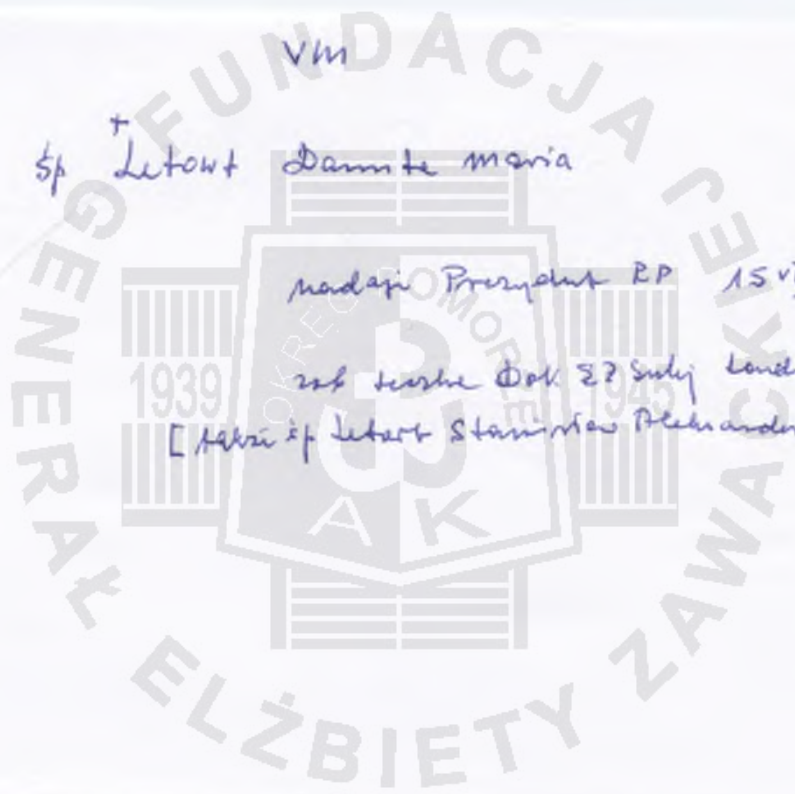 VM
+
śp Letowt Danuta Maria
nadaje Prezydent RP 15 VI
zob teczka Dok EZ Londyn
[także śp Letowt Stanisław Aleksander
FUNDACJA GENERAŁ ELŻBIETY ZAWACKIEJ
OKRĘG POMORZE
1939 1945
AK